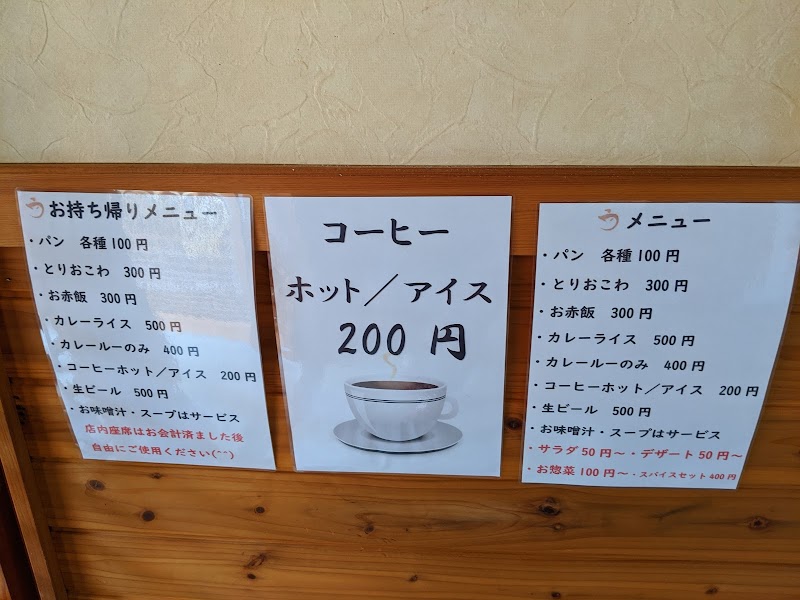 お持ち帰りメニュー
・パン 各種100円
・とりおこわ 300円
・お赤飯 300円
・カレーライス 500円
・カレールーのみ 400円
・コーヒーホット／アイス 200円
・生ビール 500円
・お味噌汁・スープはサービス
店内座席はお会計済ました後
自由にご使用ください(^^)
コーヒー
ホット／アイス
200 円
メニュー
・パン 各種100円
・とりおこわ 300円
・お赤飯 300円
・カレーライス 500円
・カレールーのみ 400円
・コーヒーホット／アイス 200円
・生ビール 500円
・お味噌汁・スープはサービス
・サラダ50円～・デザート50円～
・お惣菜100円～・スパイスセット400円